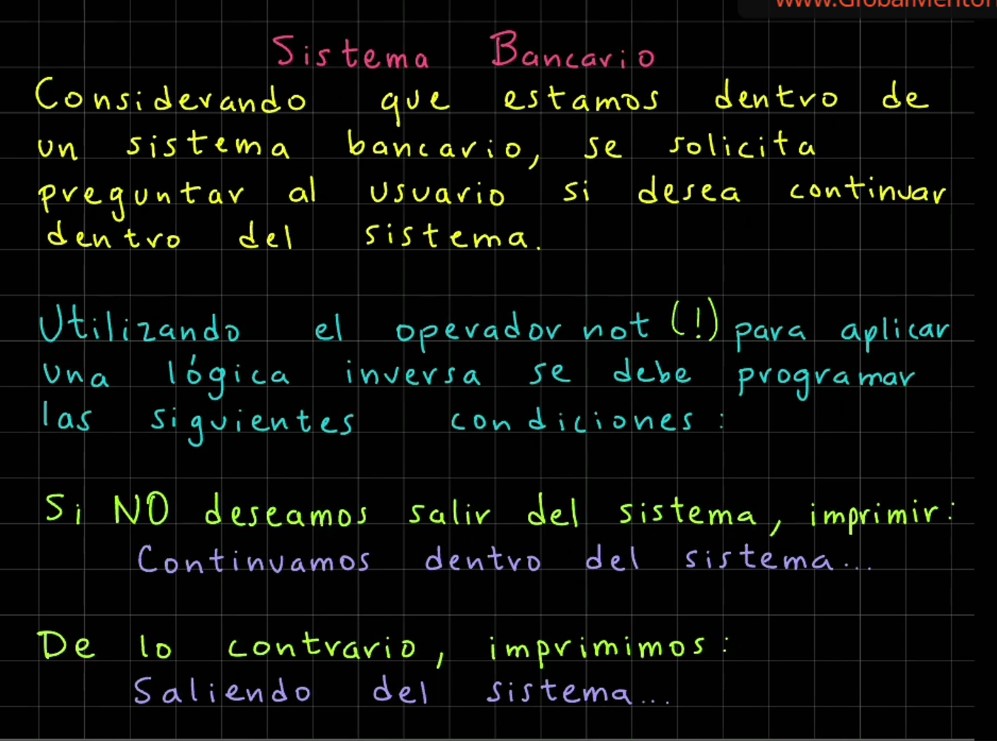 www.GlobalMentor
Sistema Bancario
Considerando que estamos dentro de
un sistema bancario, se solicita
preguntar al usuario si desea continuar
dentro del sistema.
Utilizando el operador not (!) para aplicar
una lógica inversa se debe programar
las siguientes condiciones:
Si NO deseamos salir del sistema, imprimir:
Continuamos dentro del sistema...
De lo contrario, imprimimos:
Saliendo del sistema...